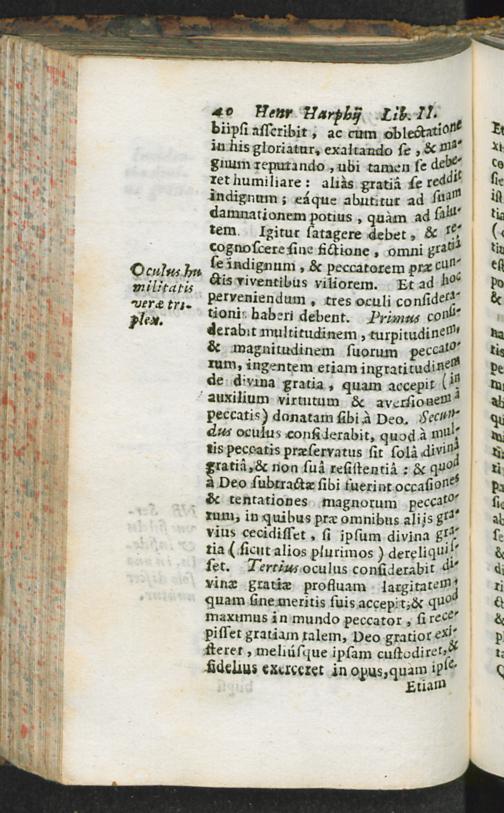 40 Henr Harphij Lib. II.
biipsi asseribit, ac cum oblectatione
in his gloriatur, exaltando se, & ma-
gnum reputando, ubi tamen se debe-
ret humiliare: aliàs gratiâ se reddit
indignum; eáque abutitur ad suam
damnationem potius, quàm ad salu-
tem. Igitur satagere debet, & re-
cognoscere sine fictione, omni gratiâ
se indignum, & peccatorem præ cun-
ctis viventibus viliorem. Et ad hoc
perveniendum, tres oculi considera-
tionis haberi debent. Primus consi-
derabit multitudinem, turpitudinem,
& magnitudinem suorum peccato-
rum, ingentem etiam ingratitudinem
de divina gratia, quam accepit (in
auxilium virtutum & aversionem à
peccatis) donatam sibi à Deo. Secun-
dus oculus considerabit, quod à mul-
tis peccatis præservatus sit solâ divinâ
gratiâ, & non suâ resistentiâ: & quod
à Deo subtractæ sibi fuerint occasiones
& tentationes magnorum peccato-
rum, in quibus præ omnibus alijs gra-
vius cecidisset, si ipsum divina gra-
tia (sicut alios plurimos) dereliquis-
set. Tertius oculus considerabit di-
vinæ gratiæ profluam largitatem,
quam sine meritis suis accepit, & quod
maximus in mundo peccator, si rece-
pisset gratiam talem, Deo gratior exi-
steret, meliúsque ipsam custodiret, &
fidelius exerceret in opus, quàm ipse.
Etiam
Oculus hu
militatis
veræ tri-
plex.